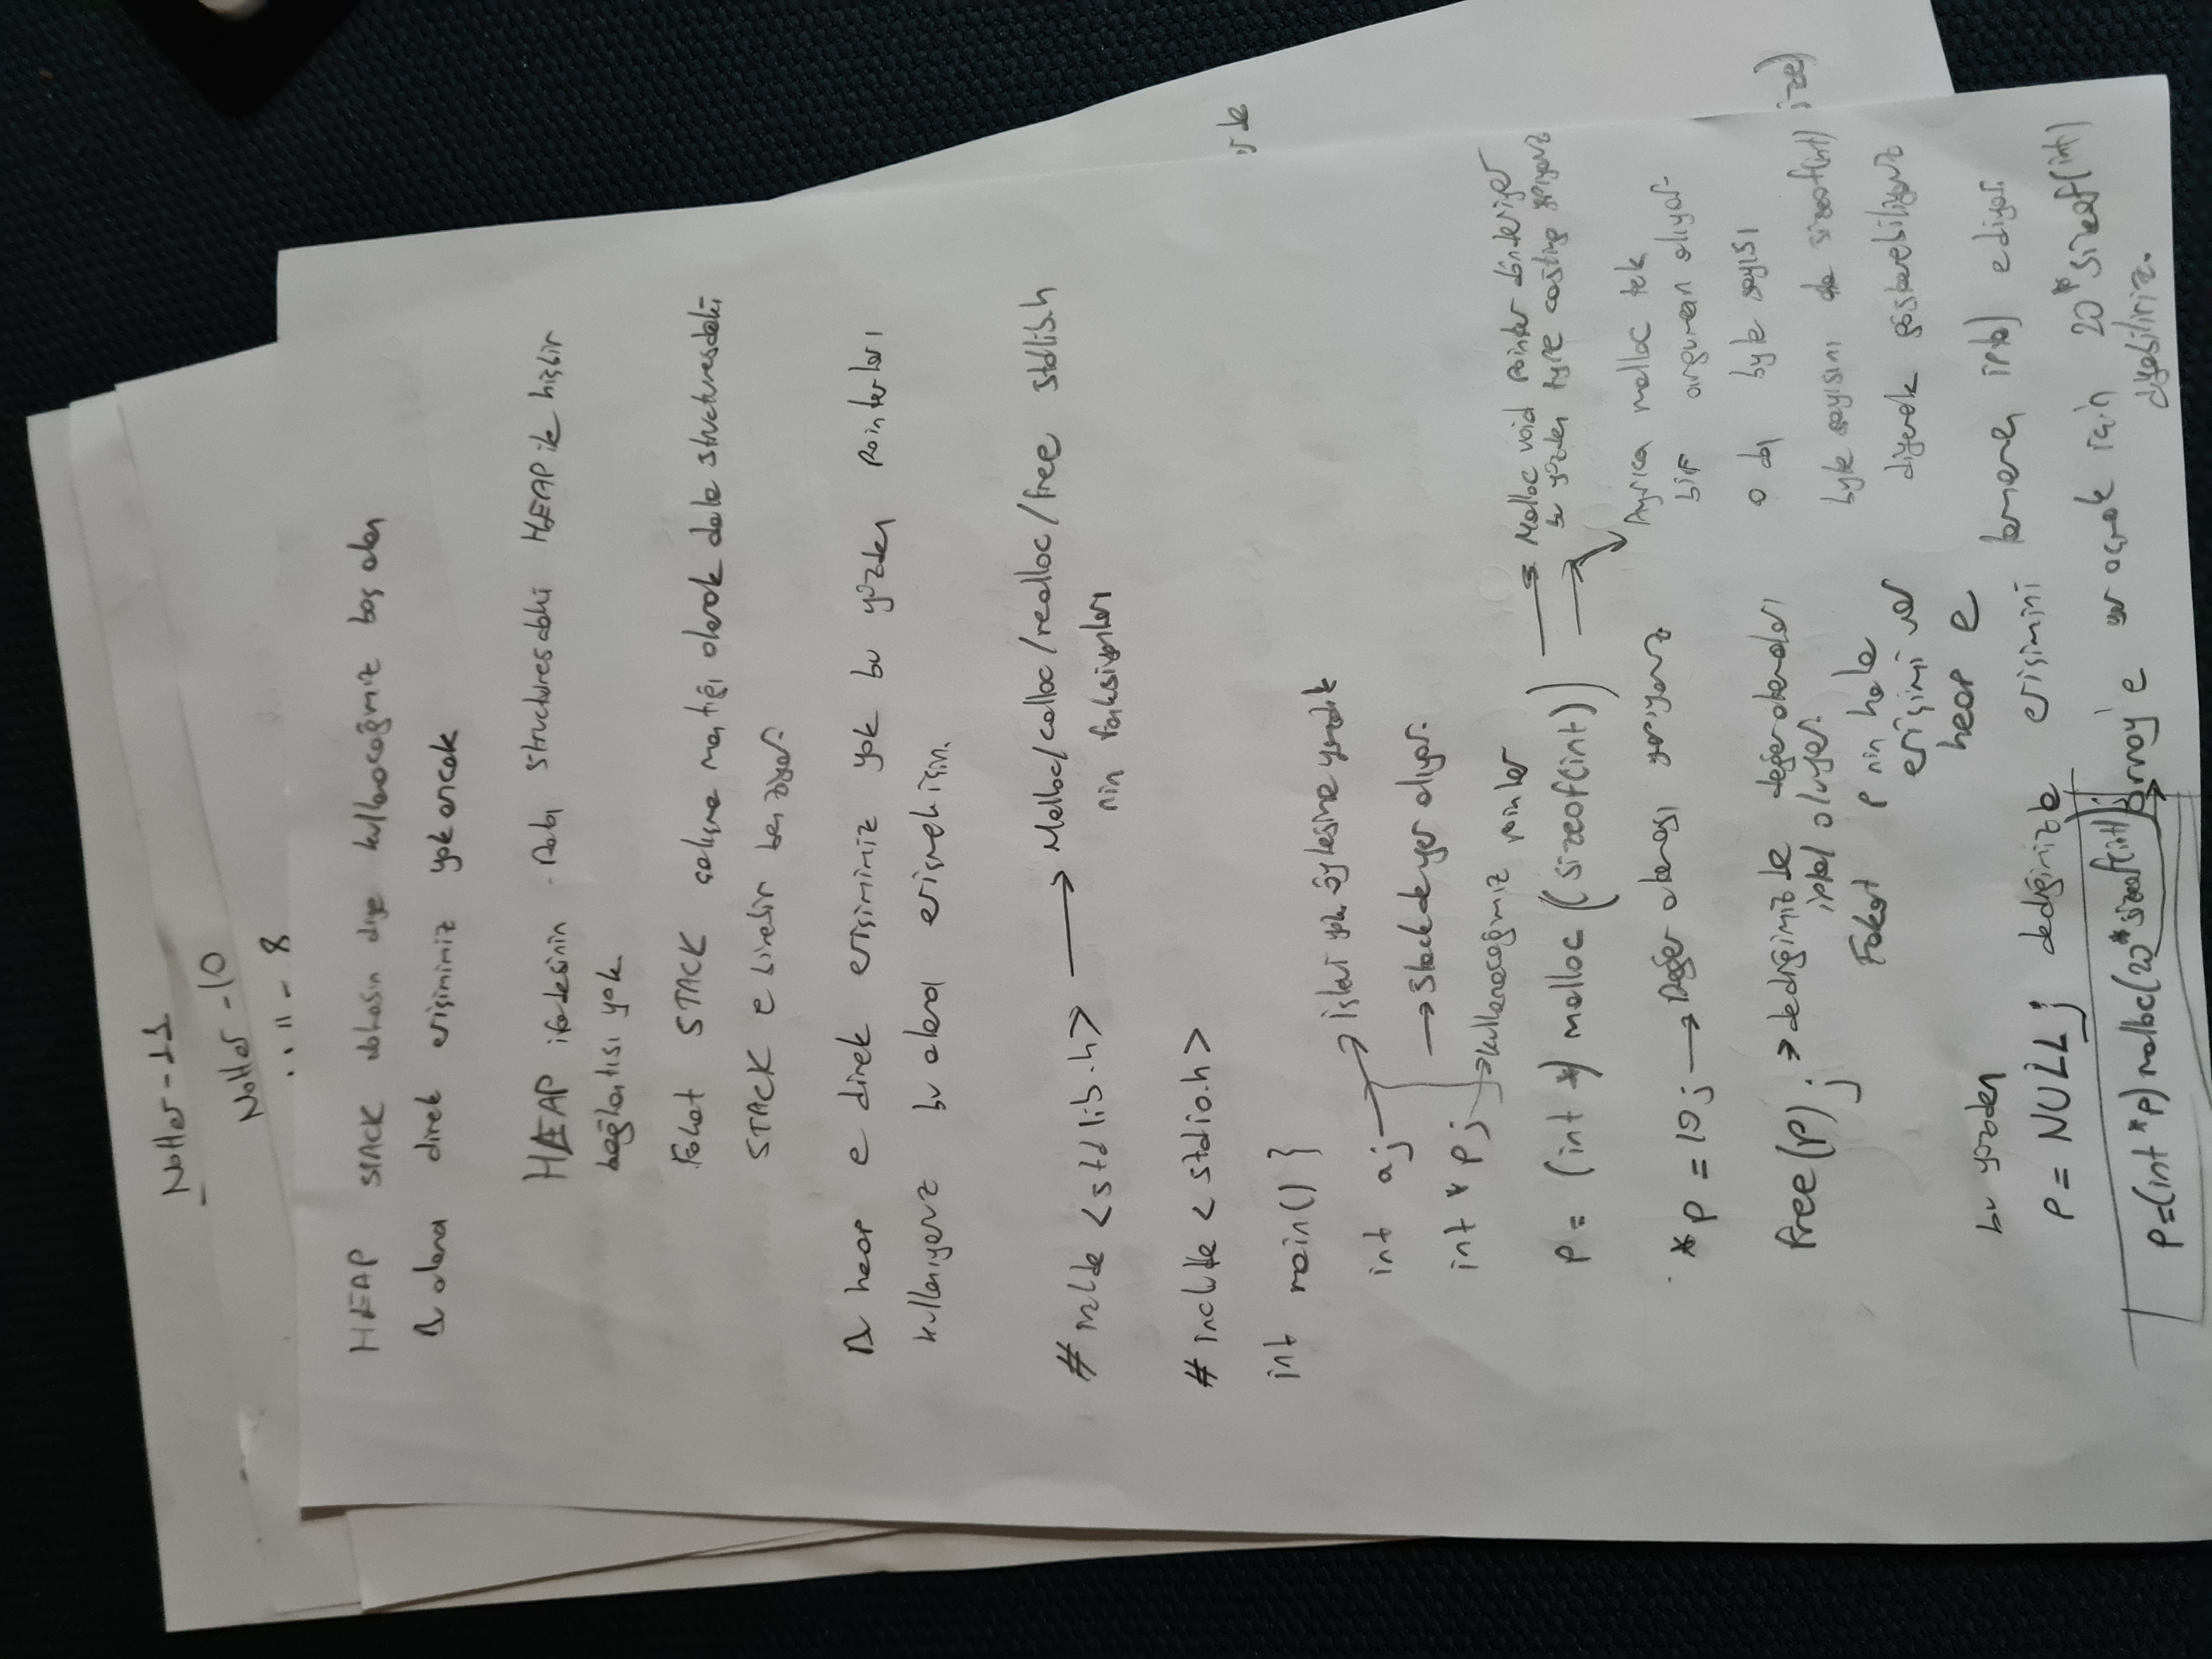 Notlar-11
Notlar-10
" - 8
HEAP STACK dolmasın diye kullanacağımız boş alan
Bu alana direk erişimimiz yok ancak
HEAP ifadesinin Data structuresdaki HEAP ile hiçbir
bağlantısı yok.
Fakat STACK çalışma mantığı olarak data structuresdaki
STACK e birebir benziyor.
Bu heap e direk erişimimiz yok bu yüzden pointerları
kullanıyoruz bu alana erişmek için.
# inclde <stdlib.h> → Malloc/calloc/realloc/free stdlib.h
nin fonksiyonları
# include < stdio.h >
int main() }
int a; → İşlevi yok öylesine yazdık
→ Stackde yer alıyor.
int * p; → kullanacağımız pointer
p = (int *) malloc (sizeof(int)) → Malloc void pointer dönderiyor
bu yüzden type casting yapıyoruz
Ayrıca malloc tek
bir arguman alıyor
o da byte sayısı
byte sayısını da sizeof(int)
diyerek gösterebiliyoruz
*p = 10; → Değer ataması yapıyoruz
free(p); → dediğimizde değer atamaları
iptal oluyor.
Fakat p nin hala
erişimi var
heap e
bu yüzden
p = NULL; dediğimizde erişimini tamamen iptal ediyor.
p=(int *p) malloc(20*sizeof(int)); Array'e yer açmak için 20*sizeof(int)
diyebiliriz.